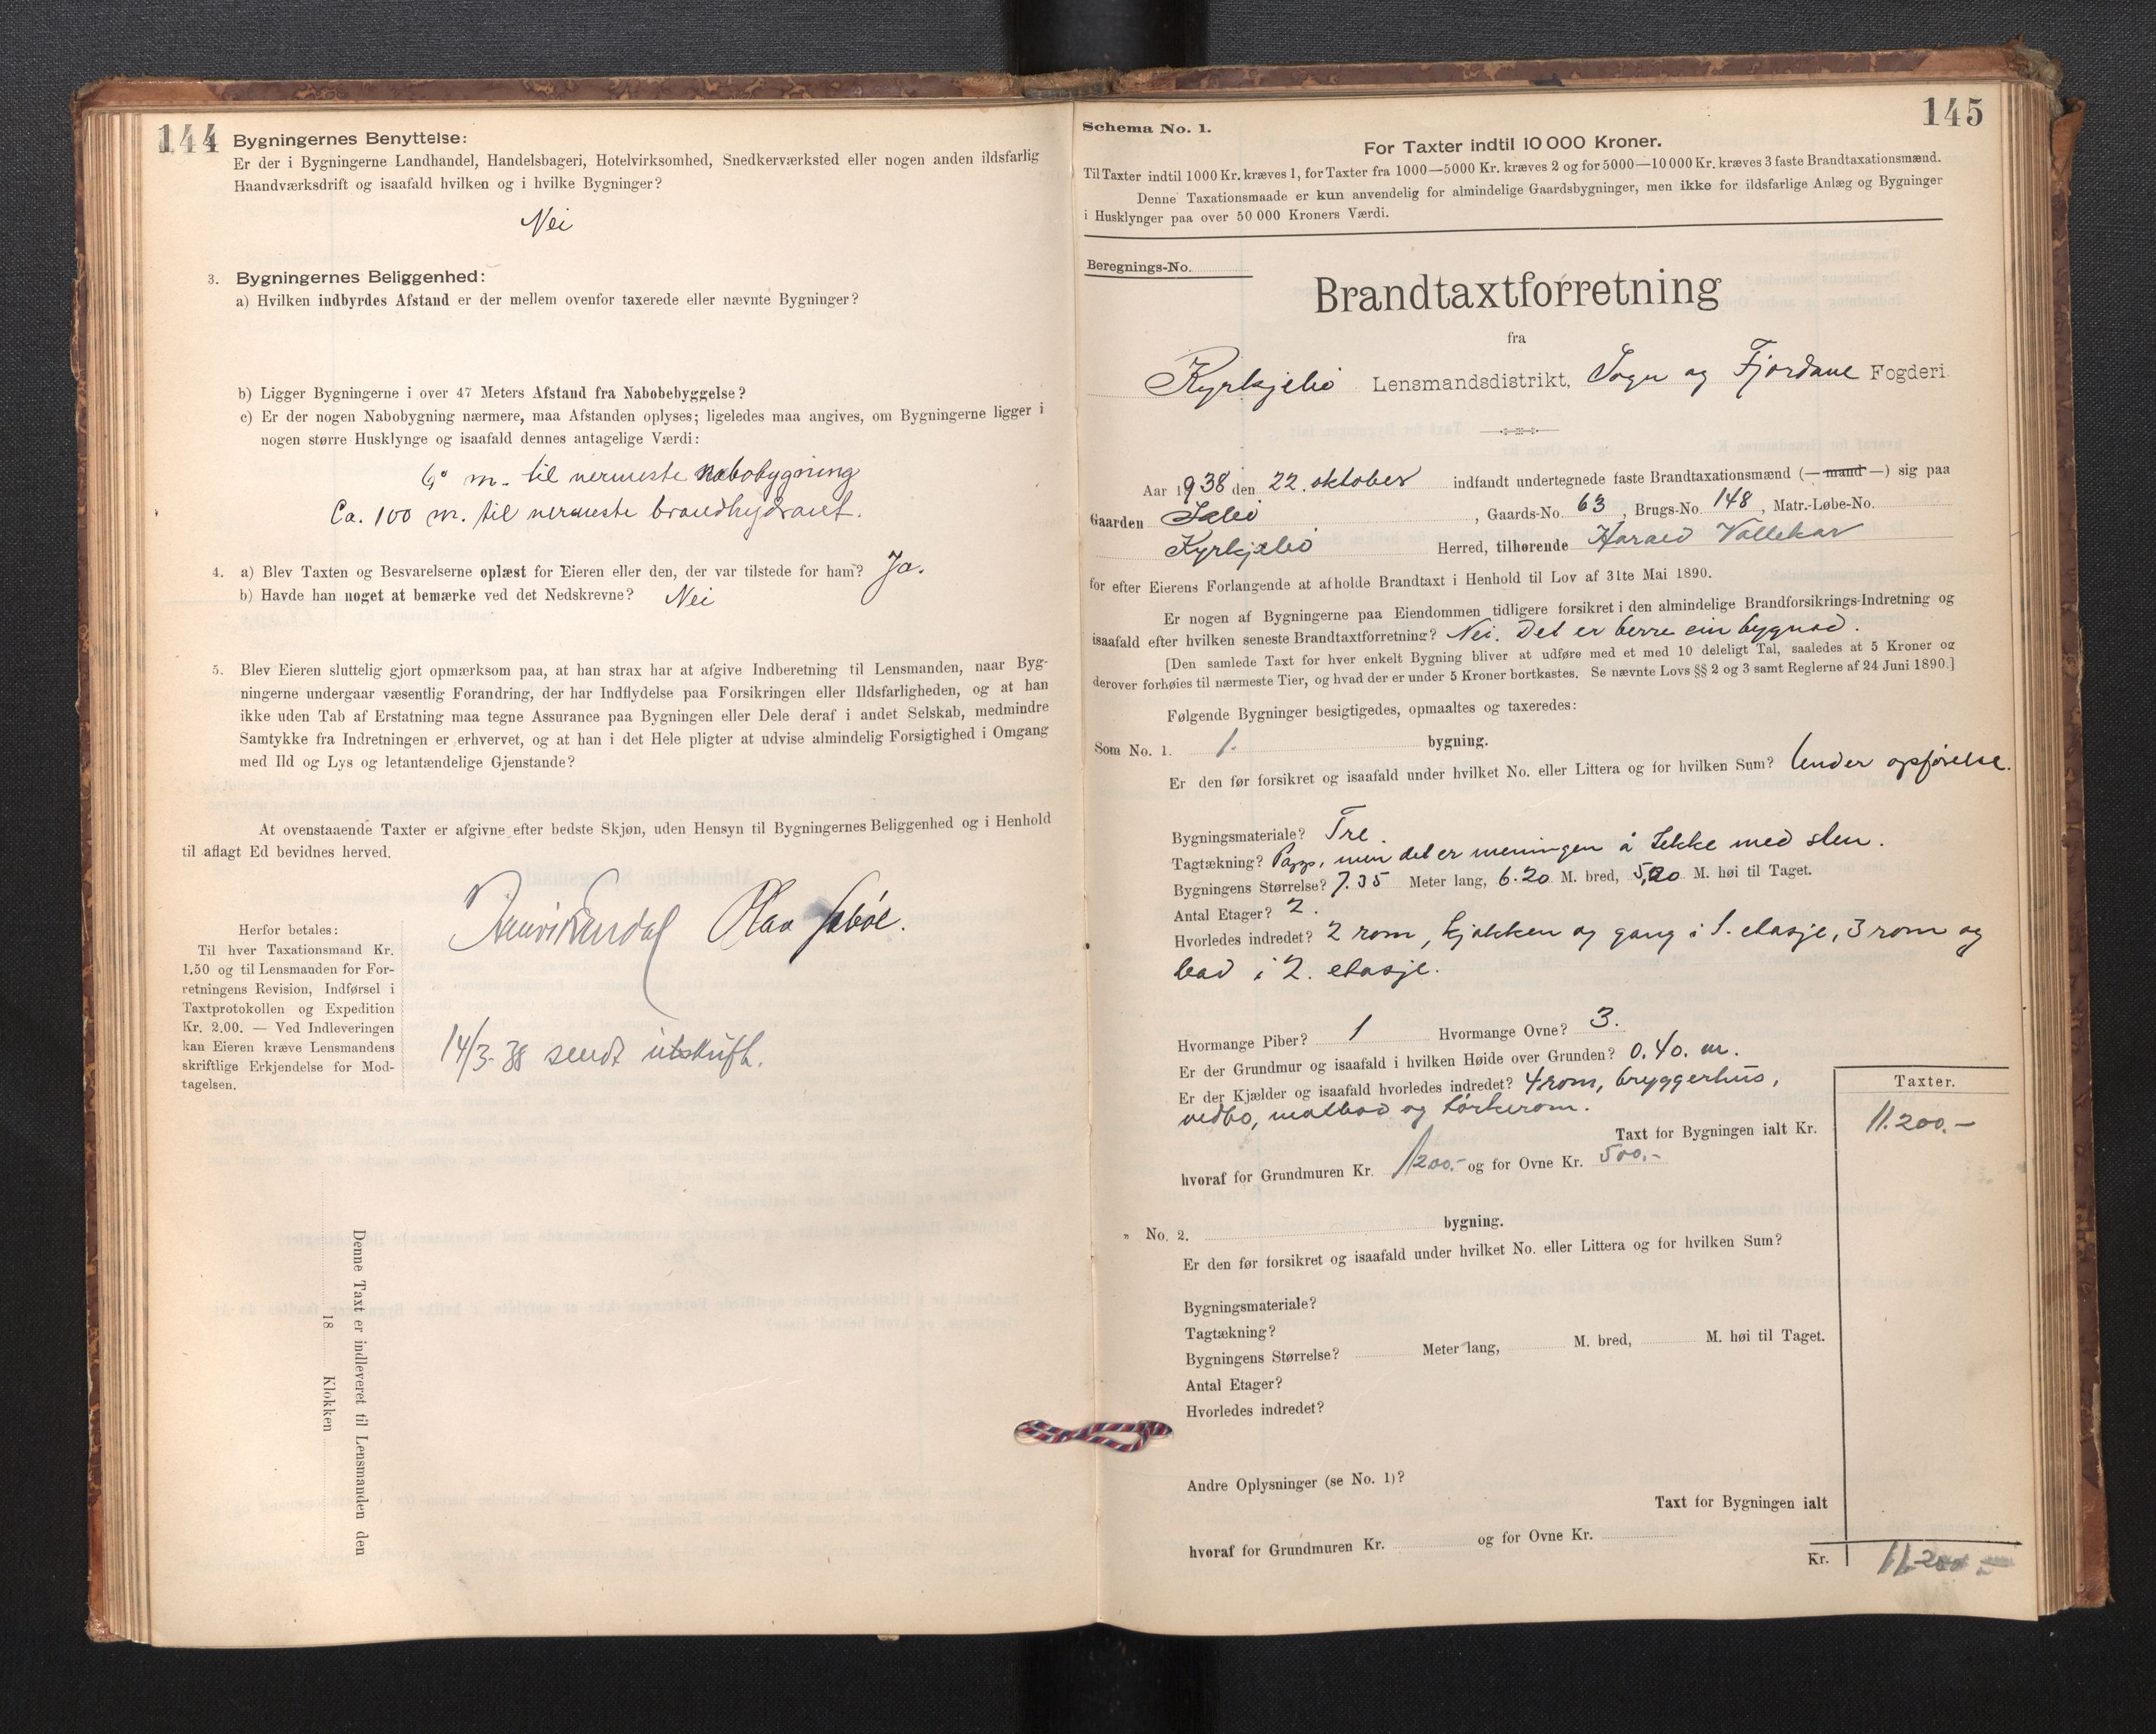 144
Bygningernes Benyttelse:
Er der i Bygningerne Landhandel, Handelsbageri, Hotelvirksomhed, Snedkerværksted eller nogen anden ildsfarlig
Haandværksdrift og isaafald hvilken og i hvilke Bygninger?
Nei
3. Bygningernes Beliggenhed:
a) Hvilken indbyrdes Afstand er der mellem ovenfor taxerede eller nævnte Bygninger?
b) Ligger Bygningerne i over 47 Meters Afstand fra Nabobebyggelse?
c) Er der nogen Nabobygning nærmere, maa Afstanden oplyses; ligeledes maa angives, om Bygningerne ligger i
nogen større Husklynge og isaafald dennes antagelige Værdi:
m. til nermeste nabobygning
Ca. 100 m. til nermeste brandhydrant.
4. a) Blev Taxten og Besvarelserne oplæst for Eieren eller den, der var tilstede for ham? Ja.
b) Havde han noget at bemærke ved det Nedskrevne? Nei
5. Blev Eieren sluttelig gjort opmærksom paa, at han strax har at afgive Indberetning til Lensmanden, naar Byg-
ningerne undergaar væsentlig Forandring, der har Indflydelse paa Forsikringen eller Ildsfarligheden, og at han
ikke uden Tab af Erstatning maa tegne Assurance paa Bygningen eller Dele deraf i andet Selskab, medmindre
Samtykke fra Indretningen er erhvervet, og at han i det Hele pligter at udvise almindelig Forsigtighed i Omgang
med Ild og Lys og letantændelige Gjenstande?
At ovenstaaende Taxter er afgivne efter bedste Skjøn, uden Hensyn til Bygningernes Beliggenhed og i Henhold
til aflagt Ed bevidnes herved.
Olav
Herfor betales:
Til hver Taxationsmand Kr.
1.50 og til Lensmanden for For-
retningens Revision, Indførsel i
Taxtprotokollen og Expedition
Kr. 2.00. — Ved Indleveringen
kan Eieren kræve Lensmandens
skriftlige Erkjendelse for Mod-
tagelsen.
14/3-38 sendt utskrift.
Denne Taxt er indleveret til Lensmanden den
18 Klokken
145
Schema No. 1.
For Taxter indtil 10 000 Kroner.
Til Taxter indtil 1000 Kr. kræves 1, for Taxter fra 1000—5000 Kr. kræves 2 og for 5000—10 000 Kr. kræves 3 faste Brandtaxationsmænd.
Denne Taxationsmaade er kun anvendelig for almindelige Gaardsbygninger, men ikke for ildsfarlige Anlæg og Bygninger
i Husklynger paa over 50 000 Kroners Værdi.
Beregnings-No.
Brandtaxtforretning
fra
Kyrkjebø Lensmandsdistrikt, Sogn og Fjordane Fogderi
Aar 1938 den 22. oktober indfandt undertegnede faste Brandtaxationsmænd (— mand —) sig paa
Gaarden , Gaards-No. 63, Brugs-No. 148, Matr.-Løbe-No.
Kyrkjebø Herred, tilhørende Harald
for efter Eierens Forlangende at afholde Brandtaxt i Henhold til Lov af 31te Mai 1890.
Er nogen af Bygningerne paa Eiendommen tidligere forsikret i den almindelige Brandforsikrings-Indretning og
isaafald efter hvilken seneste Brandtaxtforretning? Nei. Det er berre ein bygnad.
[Den samlede Taxt for hver enkelt Bygning bliver at udføre med et med 10 deleligt Tal, saaledes at 5 Kroner og
derover forhøies til nærmeste Tier, og hvad der er under 5 Kroner bortkastes. Se nævnte Lovs §§ 2 og 3 samt Reglerne af 24 Juni 1890.]
Følgende Bygninger besigtigedes, opmaaltes og taxeredes:
Som No. 1. 1. bygning.
Er den før forsikret og isaafald under hvilket No. eller Littera og for hvilken Sum? Under opførelse.
Bygningsmateriale? Tre.
Tagtækning? Papp, men det er meningen å tekke med sten.
Bygningens Størrelse? 7.35 Meter lang, 6.20 M. bred, 5,20 M. høi til Taget.
Antal Etager? 2.
Hvorledes indredet? 2 rom, kjøkken og gang i 1. etasje, 3 rom og
bad i 2. etasje.
Hvormange Piber? 1 Hvormange Ovne? 3.
Er der Grundmur og isaafald i hvilken Høide over Grunden? 0.40. m.
Er der Kjælder og isaafald hvorledes indredet? 4 rom, bryggerhus,
vedbo, matbod og tørkerom.
Taxter.
Taxt for Bygningen ialt Kr. 11.200.-
hvoraf for Grundmuren Kr. 1200.- og for Ovne Kr. 500.-
" No. 2. bygning.
Er den før forsikret og isaafald under hvilket No. eller Littera og for hvilken Sum?
Bygningsmateriale?
Tagtækning?
Bygningens Størrelse? Meter lang, M. bred, M. høi til Taget.
Antal Etager?
Hvorledes indredet?
Andre Oplysninger (se No. 1)?
Taxt for Bygningen ialt
hvoraf for Grundmuren Kr. og for Ovne Kr.
Kr. 11.200.-